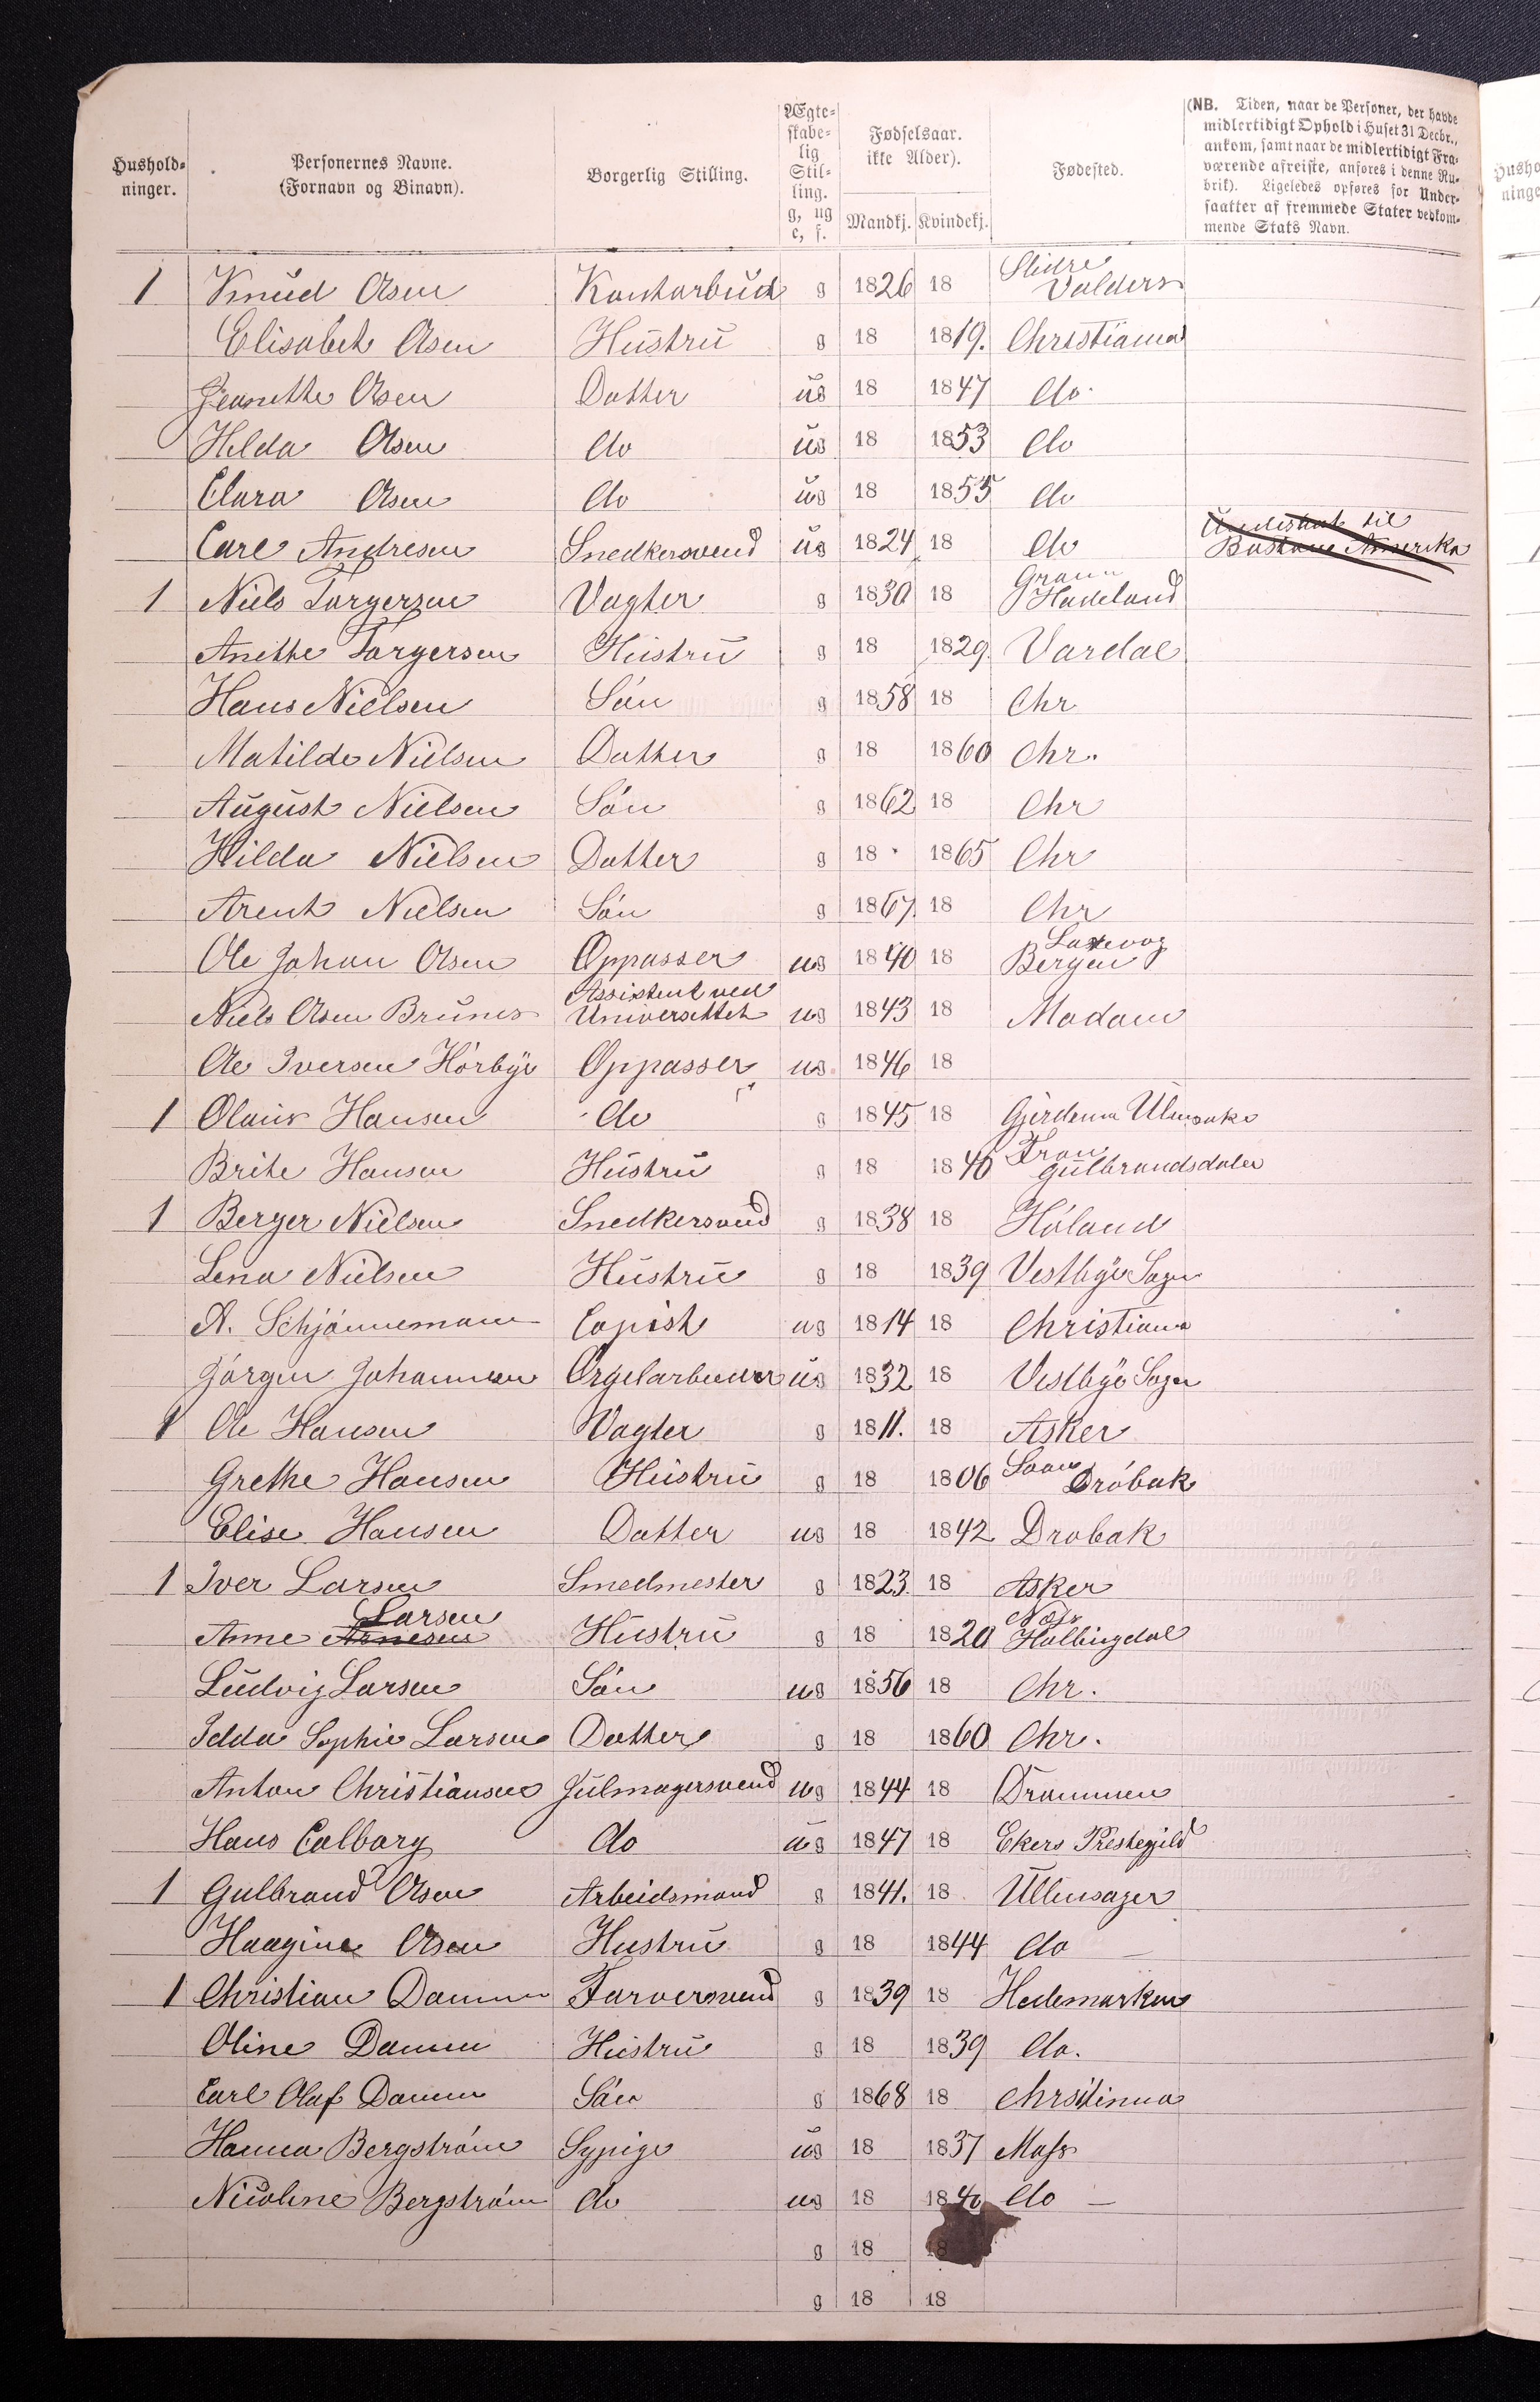 Hushold-
ninger.
Personernes Navne.
(Fornavn og Binavn).
Borgerlig Stilling.
Ægte-
skabe-
lig
Stil-
ling.
g, ug
e, f.
Fødselsaar.
ikke Alder).
Mandkj. Kvindekj.
Fødested.
(NB. Tiden, naar de Personer, der havde
midlertidigt Ophold i Huset 31 Decbr.,
ankom, samt naar de midlertidigt Fra-
værende afreiste, anføres i denne Ru-
brik). Ligeledes opføres for Under-
saatter af fremmede Stater vedkom-
mende Stats Navn.
1 Knud Olsen Kontorbud g 1826 18 Slidre Valders
Elisabet Olsen Hustru g 18 1819. Christiania
Jeanette Olsen Datter ug 18 1847 do
Hilda Olsen do ug 18 1853 do
Clara Olsen do ug 18 1855 do
Carl Andresen Snedkersvend ug 1824 18 do til Bostone Amerika
1 Niels Torgersen Vagter g 1830 18 Grann Hadeland
Anethe Torgersen Hustru g 18 1829. Vardal
Hans Nielsen Són g 1858 18 Chr
Matilde Nielsen Datter g 18 1860 Chr.
August Nielsen Són g 1862 18 Chr
Hilda Nielsen Datter g 18 1865 Chr
Arent Nielsen Són g 1867. 18 Chr
Ole Johan Olsen Oppasser ug 1840 18 Laxevog Bergen
Niels Olsen Brunes Assistent ved Universettet ug 1843 18 Modum
Ole Iversen Hórbÿe Oppasser ug 1846 18
1 Olaus Hansen do g 1845 18 Gjerdrum
Brite Hansen Hustru g 18 1840 Fron gulbrandsdalen
1 Berger Nielsen Snedkersvend g 1838 18 Hóland
Lena Nielsen Hustru g 18 1839 Vestbÿe Sogn
A. Schjónnemann Copist ug 1814 18 Christiania
Jórgen Johannesen Orgelarbeider ug 1832 18 Vestbÿe Sogn
1 Ole Hansen Vagter g 1811. 18 Asker
Grethe Hansen Hustru g 18 1806 Soon Dróbak
Elise Hansen Datter ug 18 1842 Drobak
1 Iver Larsen Smedmester g 1823. 18 Asker
Anne Arnesen Larsen Hustru g 18 1820 Næs Hallingdal
Ludvig Larsen Són ug 1856 18 Chr.
Idda Sophie Larsen Datter g 18 1860 Chr.
Anton Christiansen Julmagersvend ug 1844 18 Drammen
Hans Calborg do ug 1847 18 Ekers Prestegjild
1 Gulbrand Olsen Arbeidsmand g 1841. 18 Ullensager
Haagine Olsen Hustru g 18 1844 do —
1 Christian Damm Farversvend g 1839 18 Hedemarken
Oline Damm Hustru g 18 1839 do.
Carl Olaf Damm Són g 1868 18 Chrsitinia
Hanna Bergstróm Sypige ug 18 1837 Moss
Nicoline Bergstróm do ug 18 1840 do —
g 18 18
g 18 18